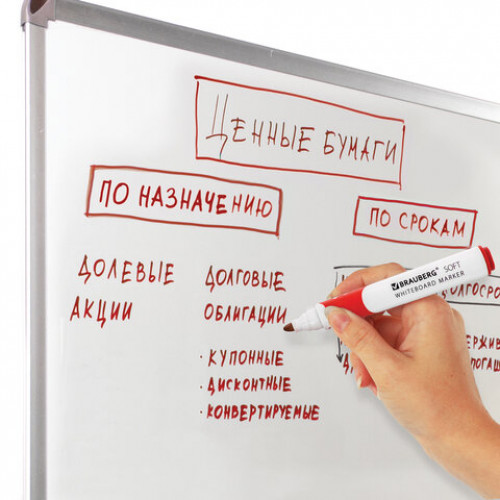 ЦЕННЫЕ БУМАГИ
ПО НАЗНАЧЕНИЮ
ПО СРОКАМ
ДОЛЕВЫЕ
АКЦИИ
ДОЛГОВЫЕ
ОБЛИГАЦИИ
· КУПОННЫЕ
· ДИСКОНТНЫЕ
· КОНВЕРТИРУЕМЫЕ
BRAUBERG® SOFT
WHITEBOARD MARKER